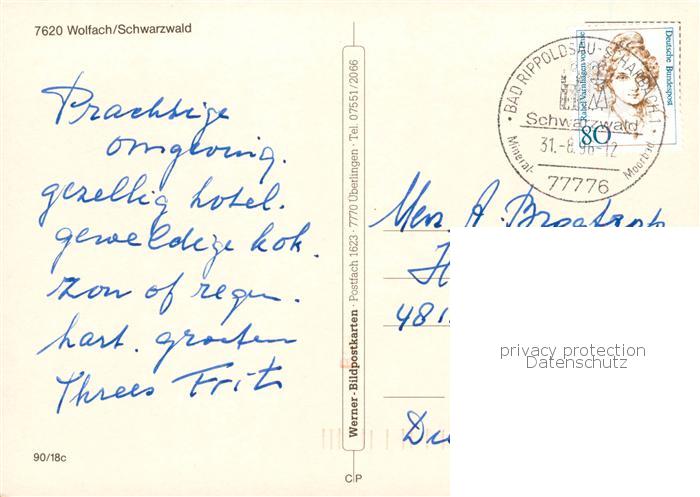 7620 Wolfach/Schwarzwald
Prachtige
omgeving.
gezellig hotel.
geweldige kok.
zon of regen.
hart. groeten
Threes Frits
90/18c
Werner-Bildpostkarten · Postfach 1623 · 7770 Überlingen · Tel. 07551/2066
C|P
Deutsche Bundespost
Rahel Varnhagen von Ense
80
BAD RIPPOLDSAU-SCHAPBACH 1
Schwarzwald
31.-8.96-12
Mineral- Moorbad
77776
Mevr. A.
H
481
privacy protection
Datenschutz